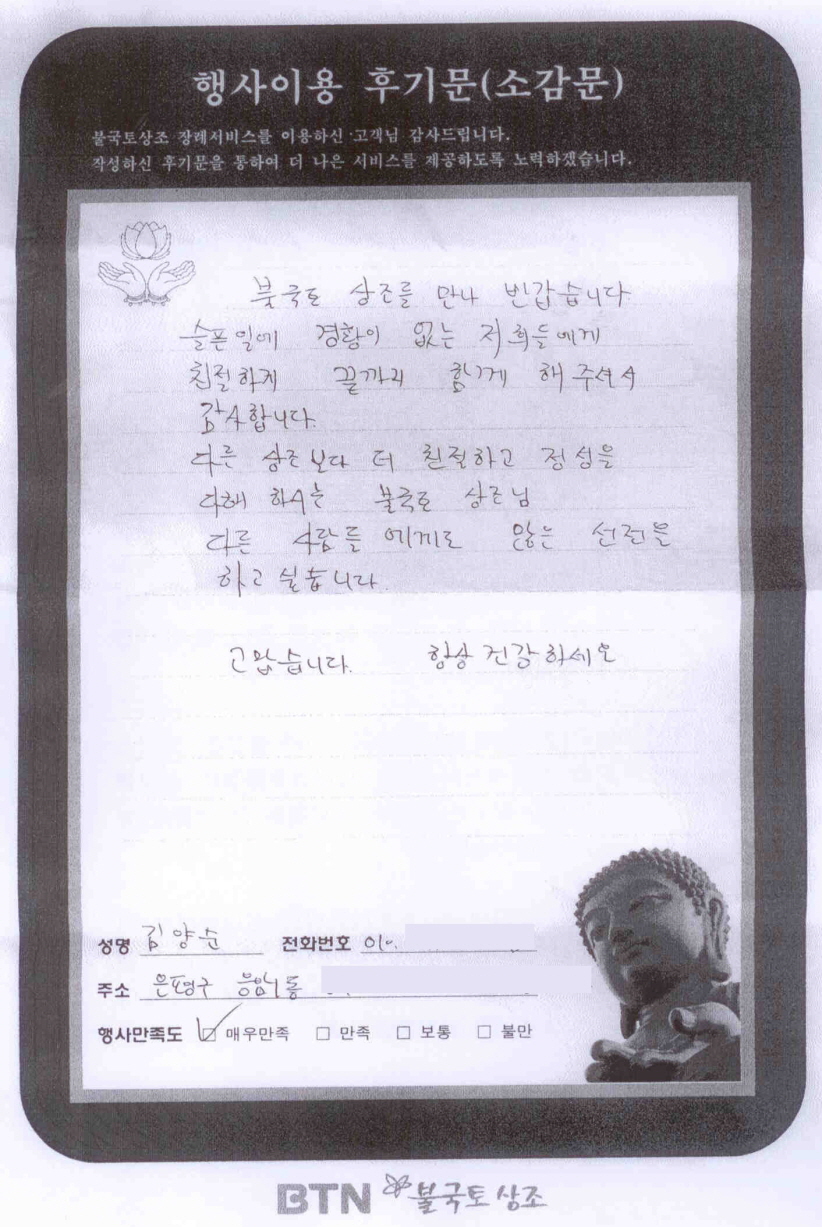 행사이용 후기문(소감문)
불국토상조 장례서비스를 이용하신 고객님 감사드립니다.
작성하신 후기문을 통하여 더 나은 서비스를 제공하도록 노력하겠습니다.
불국토 상조를 만나 반갑습니다
슬픈일에 경황이 없는 저희들에게
친절하게 끝까지 함께 해 주셔서
감사합니다.
다른 상조보다 더 친절하고 정성을
다해 하시는 불국토 상조님
다른 사람들에게도 많은 선전을
하고 싶습니다.
고맙습니다. 항상 건강하세요
성명 김양순 전화번호 010.
주소 은평구 응암1동
행사만족도 ☑ 매우만족 □ 만족 □ 보통 □ 불만
BTN 불국토 상조